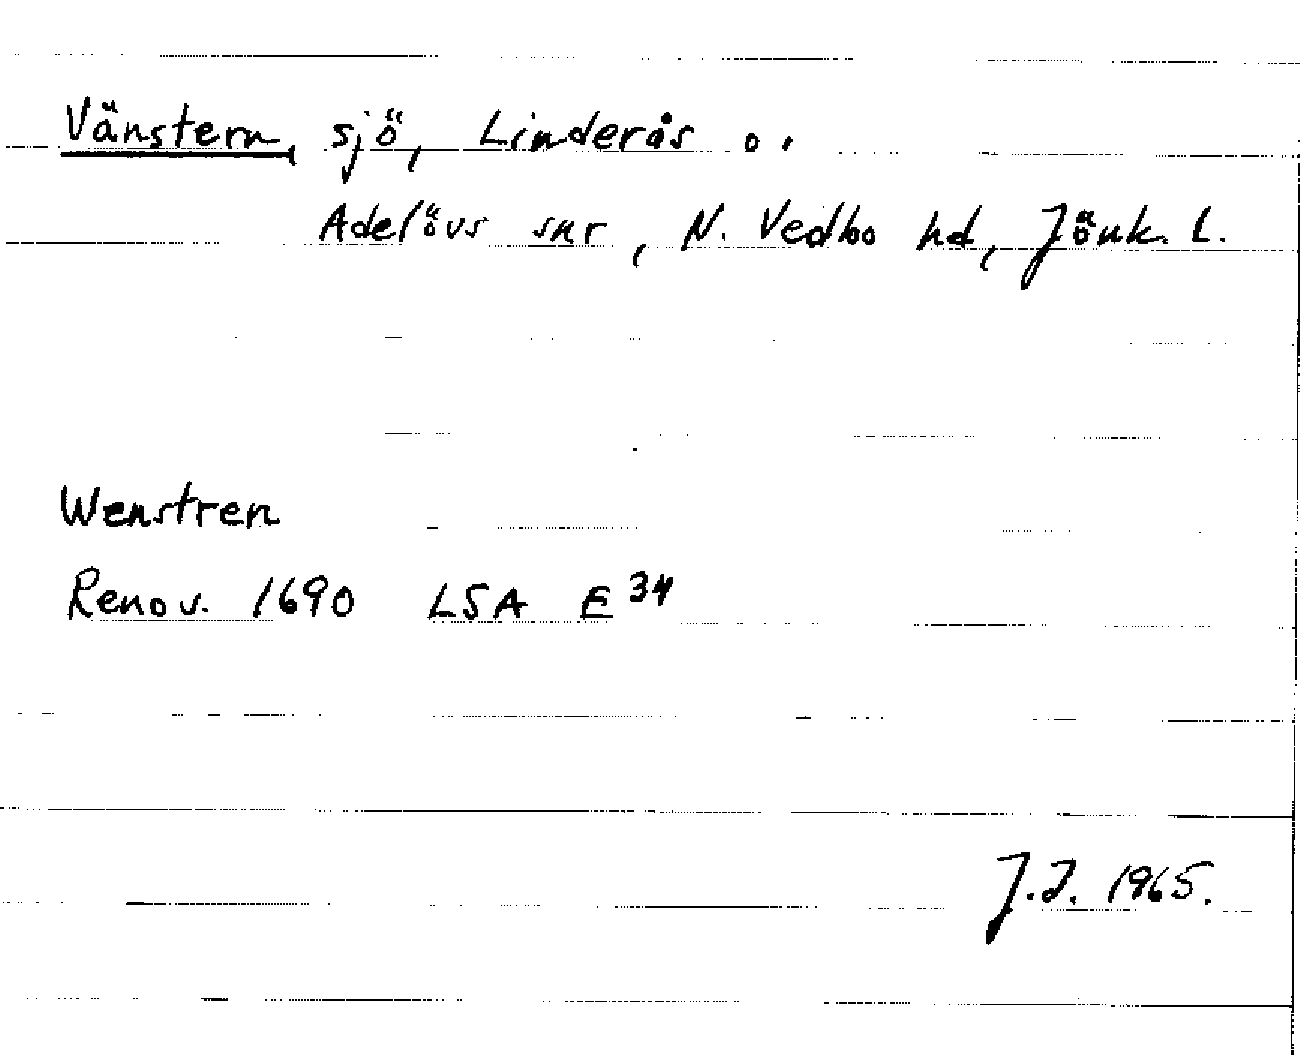 Vänstern, sjö, Linderås o.
Adelövs snr, N. Vedbo hd, Jönk. L.
Wenstren
Renov. 1690 LSA E 34
J.I. 1965.